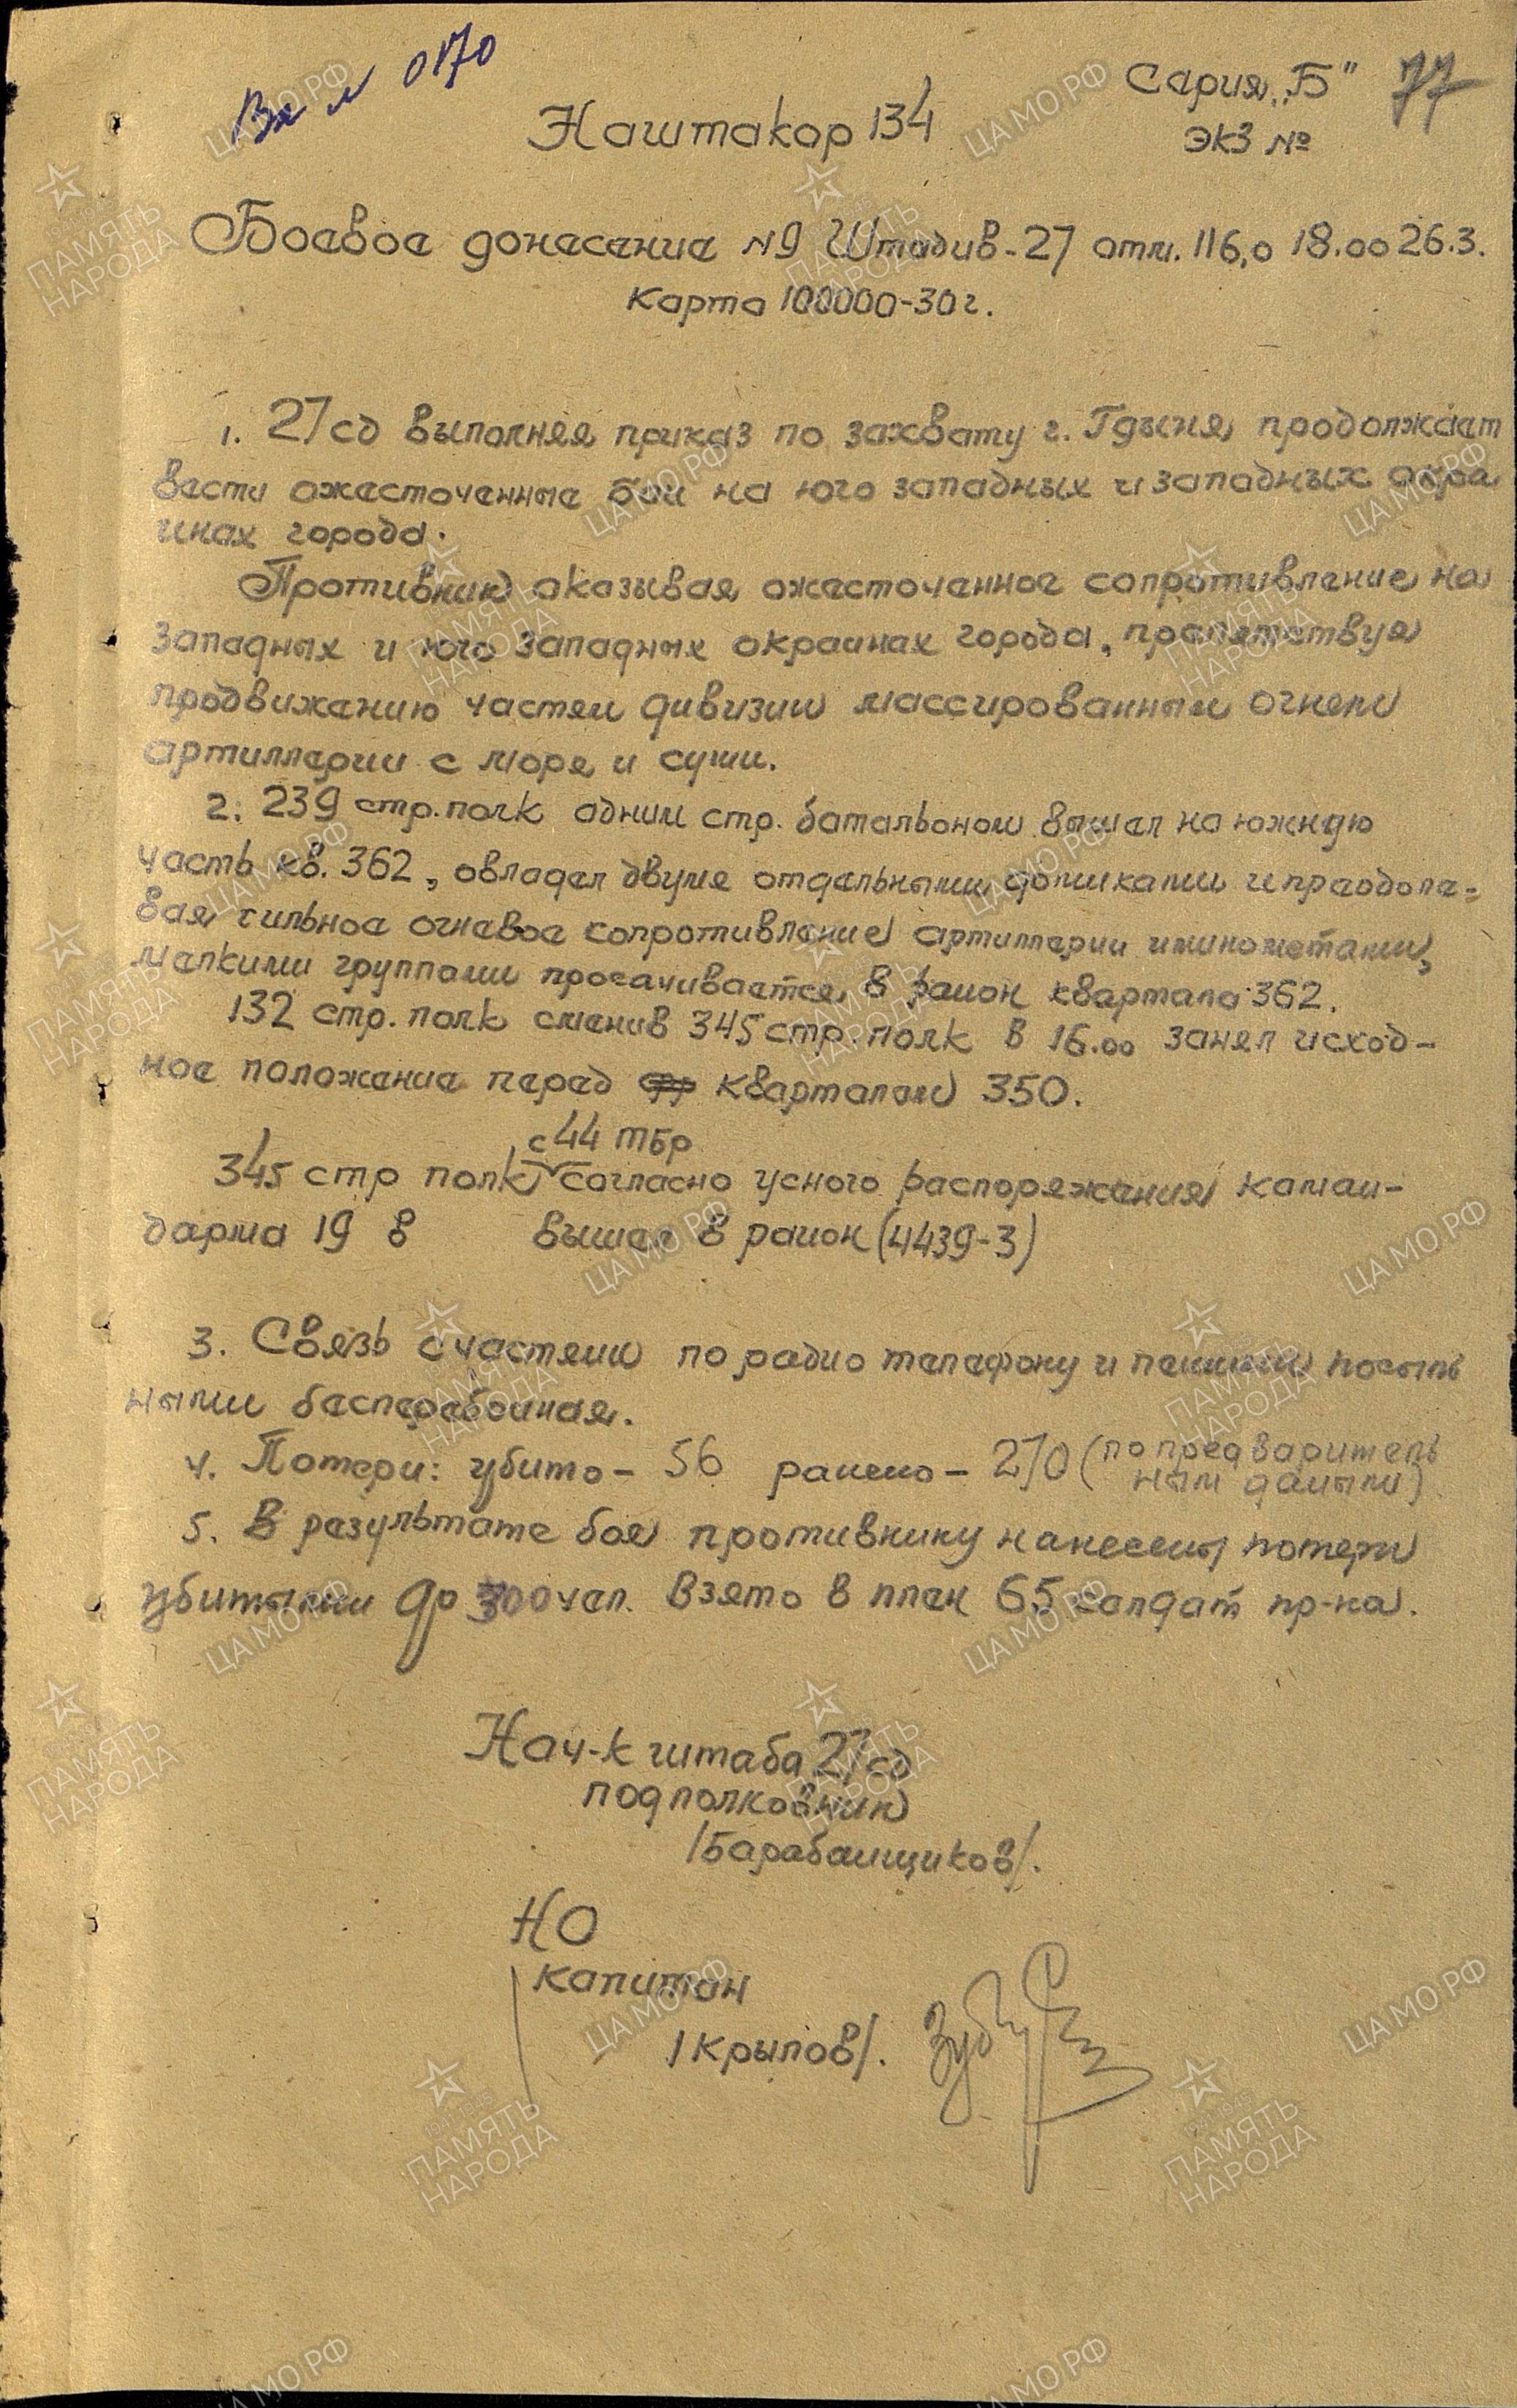 Вх № 0170
Серия „Б" 77
Наштакор 134
экз №
Боевое донесение №9 Штадив-27 отм. 116,0 18.00 26.3.
Карта 100000-30г.
1. 27 сд выполняя приказ по захвату г. Гдыня, продолжает
вести ожесточенные бои на юго западных и западных окра
инах города.
Противник оказывая ожесточенное сопротивление на
западных и юго западных окраинах города, препятствуя
продвижению частей дивизии массированным огнем
артиллерии с моря и суши.
2. 239 стр. полк одним стр. батальоном вышел на южную
часть кв. 362, овладел двумя отдельными домиками и преодоле-
вая сильное огневое сопротивление артиллерии и минометами,
мелкими группами просачивается в район квартала 362.
132 стр. полк сменив 345 стр. полк в 16.00 занял исход-
ное положение перед кварталом 350.
с 44 тбр
345 стр полк согласно усного распоряжения коман-
дарма 19 в вышел в район (4439-3)
3. Связь с частями по радио телефону и пешими посыль
ными бесперебойная.
4. Потери: убито - 56 ранено - 270 (по предваритель
ным даным)
5. В результате боя противнику нанесены потери
убитыми до 300 чел. Взято в плен 65 солдат пр-ка.
Нач-к штаба 27 сд
подполковник
/Барабанщиков/.
НО
капитан
/Крылов/.